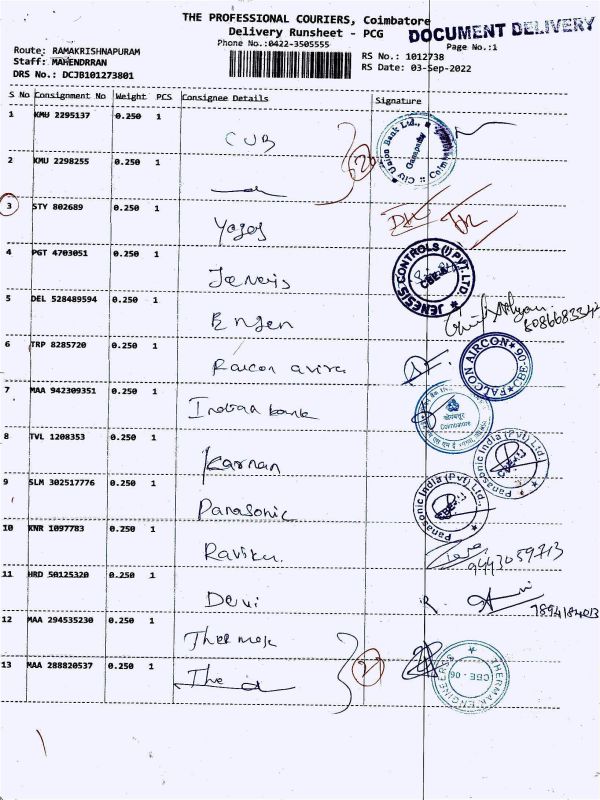 THE PROFESSIONAL COURIERS, Coimbatore
Delivery Runsheet - PCG
DOCUMENT DELIVERY
Phone No.:0422-3505555
Page No.:1
Route: RAMAKRISHNAPURAM
RS No.: 1012738
Staff: MAHENDRRAN
RS Date: 03-Sep-2022
DRS No.: DCJB101273801
S No Consignment No Weight PCS Consignee Details Signature
1 KMU 2295137 0.250 1 CUB
City Union Bank Ltd., Ganapathy Coimbatore
2 KMU 2298255 0.250 1
2
3 STY 802689 0.250 1
4 PGT 4703051 0.250 1
JENESIS CONTROLS (I) PVT. LTD. CBE-6
5 DEL 528489594 0.250 1
6 TRP 8285720 0.250 1
FALCON AIRCON CBE-06
7 MAA 942309351 0.250 1 Indian bank
कोयम्बत्तूर
Coimbatore
8 TVL 1208353 0.250 1 Karnan
Panasonic India (Pvt) Ltd.,
9 SLM 302517776 0.250 1 Panasonic
Panasonic India (Pvt) Ltd.,
10 KNR 1097783 0.250 1
9443059713
11 HRD 50125320 0.250 1 Devi
7894184013
12 MAA 294535230 0.250 1
13 MAA 288820537 0.250 1 The
2
THERMAK ENGINEERS CBE - 06